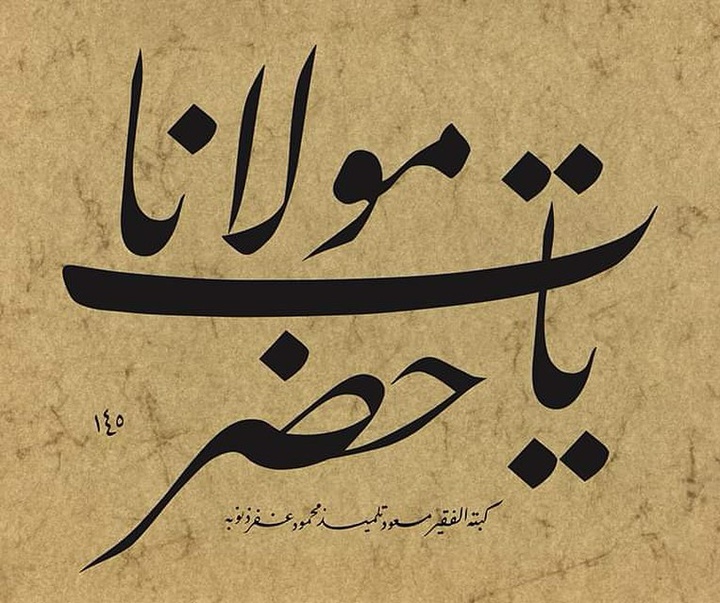 يا حضرت مولانا
١٤٤٥
كتبه الفقير مسعود تلميذ محمود غفر ذنوبه